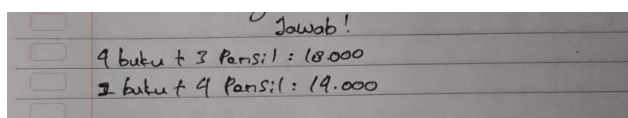 Jawab!
4 buku + 3 Pensil : 18.000
2 buku + 4 Pensil : 14.000